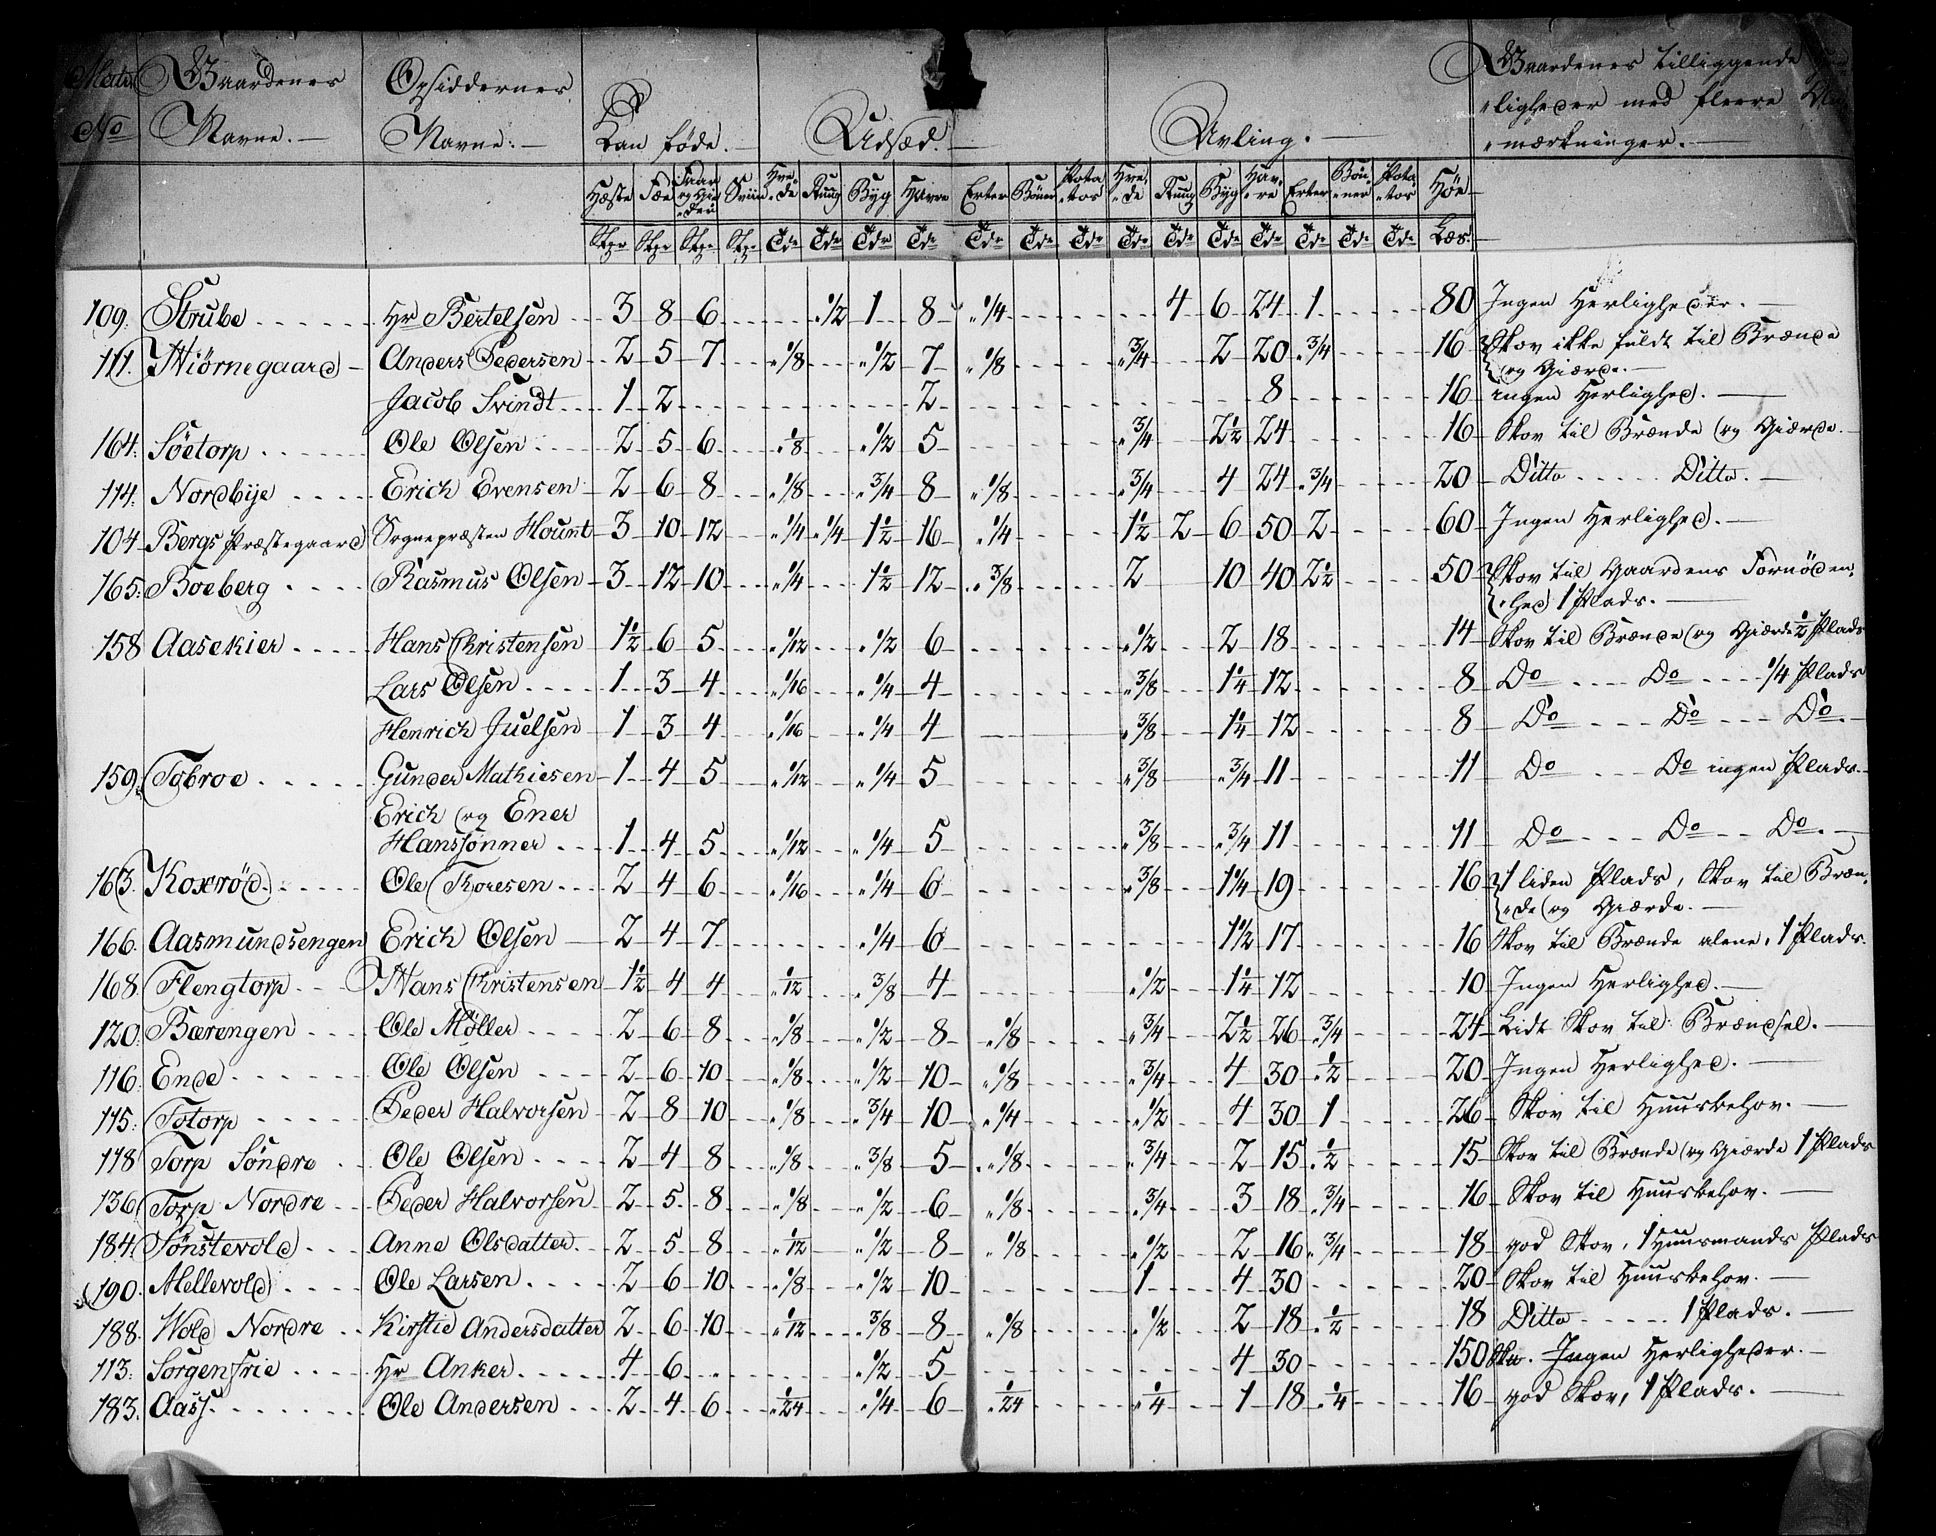 Matr: Gaardenes Opsiddernes Kan føde. Udsæd. Avling. Gaardenes tilliggende
No Navne. Navne. ligheder med fleere
mærkninger.
Hæste Fæe Faar og Gieder Sviin Hvede Ruug Byg Havre Erter Bønner Potatos Hvede Ruug Byg Havre Erter Bønner Potatos Høe
Stkr Stkr Stkr Stkr Tdr Tdr Tdr Tdr Tdr Tdr Tdr Tdr Tdr Tdr Tdr Tdr Tdr Tdr Læs.
109. Strube Hr Bertelsen 3 8 6 1/2 1 8 1/4 4 6 24 1 80 Ingen Herligheder.
111. Hiørnegaard Anders Pedersen 2 5 7 1/8 1/2 7 1/8 3/4 2 20 3/4 16 Skov ikke fuldt til Brænde
og Giærde.
Jacob Svindt 1 2 2 8 16 ingen Herlighed.
164. Søetorp Ole Olsen 2 5 6 1/8 1/2 5 3/4 2 1/2 24 16 Skov til Brænde og Giærde.
114. Nordbye Erich Evensen 2 6 8 1/8 3/4 8 1/8 3/4 4 24 3/4 20 Ditto Ditto.
104 Bergs Præstegaard Sognepræsten Hount 3 10 12 1/4 1/4 1 1/2 16 1/4 1 1/2 2 6 50 2 60 Ingen Herlighed.
165. Boeberg Rasmus Olsen 3 12 10 1/4 1 1/2 12 3/8 2 10 40 2 1/2 50 Skov til Gaardens Fornøden-
hed 1 Plads.
158 Aasekier Hans Christensen 1 1/2 6 5 1/12 1/2 6 1/2 2 18 14 Skov til Brænde og Giærde 1/2 Plads
Lars Olsen 1 3 4 1/16 1/4 4 3/8 1 1/4 12 8 Do Do 1/4 Plads
Henrich Juelsen 1 3 4 1/16 1/4 4 3/8 1 1/4 12 8 Do Do Do.
159. Tobroe Gunder Mathiesen 1 4 5 1/12 1/4 5 3/8 3/4 11 11 Do Do ingen Plads.
Erich og Ener
Hanssønner 1 4 5 1/12 1/4 5 3/8 3/4 11 11 Do Do Do.
163. Koxrød Ole Thoresen 2 4 6 1/16 1/4 6 3/8 1 1/4 19 16 1 liden Plads, Skov til Bræn-
de og Giærde.
166. Aasmundsengen Erich Olsen 2 4 7 1/4 6 1 1/2 17 16 Skov til Brænde alene, 1 Plads.
168. Flengtorp Hans Christensen 1 1/2 4 4 1/12 3/8 4 1/2 1 1/4 12 10 Ingen Herlighed.
120. Bærengen Ole Møller 2 6 8 1/8 1/2 8 1/8 3/4 2 1/2 26 3/4 24 Lidt Skov til Brændsel.
116. Ende Ole Olsen 2 6 10 1/8 1/2 10 1/8 3/4 4 30 1/2 20 Ingen Herlighed.
115. Totorp Peder Halvorsen 2 8 10 1/8 3/4 10 1/4 1/2 4 30 1 26 Skov til Huusbehov.
118 Torp Søndre Ole Olsen 2 4 8 1/8 3/8 5 1/8 3/4 2 15 1/2 15 Skov til Brænde og Giærde 1 Plads
136. Torp Nordre Peder Halvorsen 2 5 8 1/8 1/2 6 1/8 3/4 3 18 3/4 16 Skov til Huusbehov.
184. Sønstevold Anne Olsdatter 2 5 8 1/12 1/2 8 1/8 1/2 2 16 3/4 18 god Skov, 1 Huusmands Plads
190. Mellevold Ole Larsen 2 6 10 1/8 1/2 10 1 4 30 20 Skov til Huusbehov.
188. Wold Nordre Kirstie Andersdatter 2 6 10 1/12 3/8 8 1/8 1/2 2 18 1/2 18 Ditto 1 Plads.
113. Sorgenfrie Hr Anker 4 6 1/2 5 4 30 150 Ingen Herligheder.
183. Aass. Ole Andersen 2 4 6 1/24 1/4 6 1/24 1/4 1 18 1/4 16 god Skov, 1 Plads.